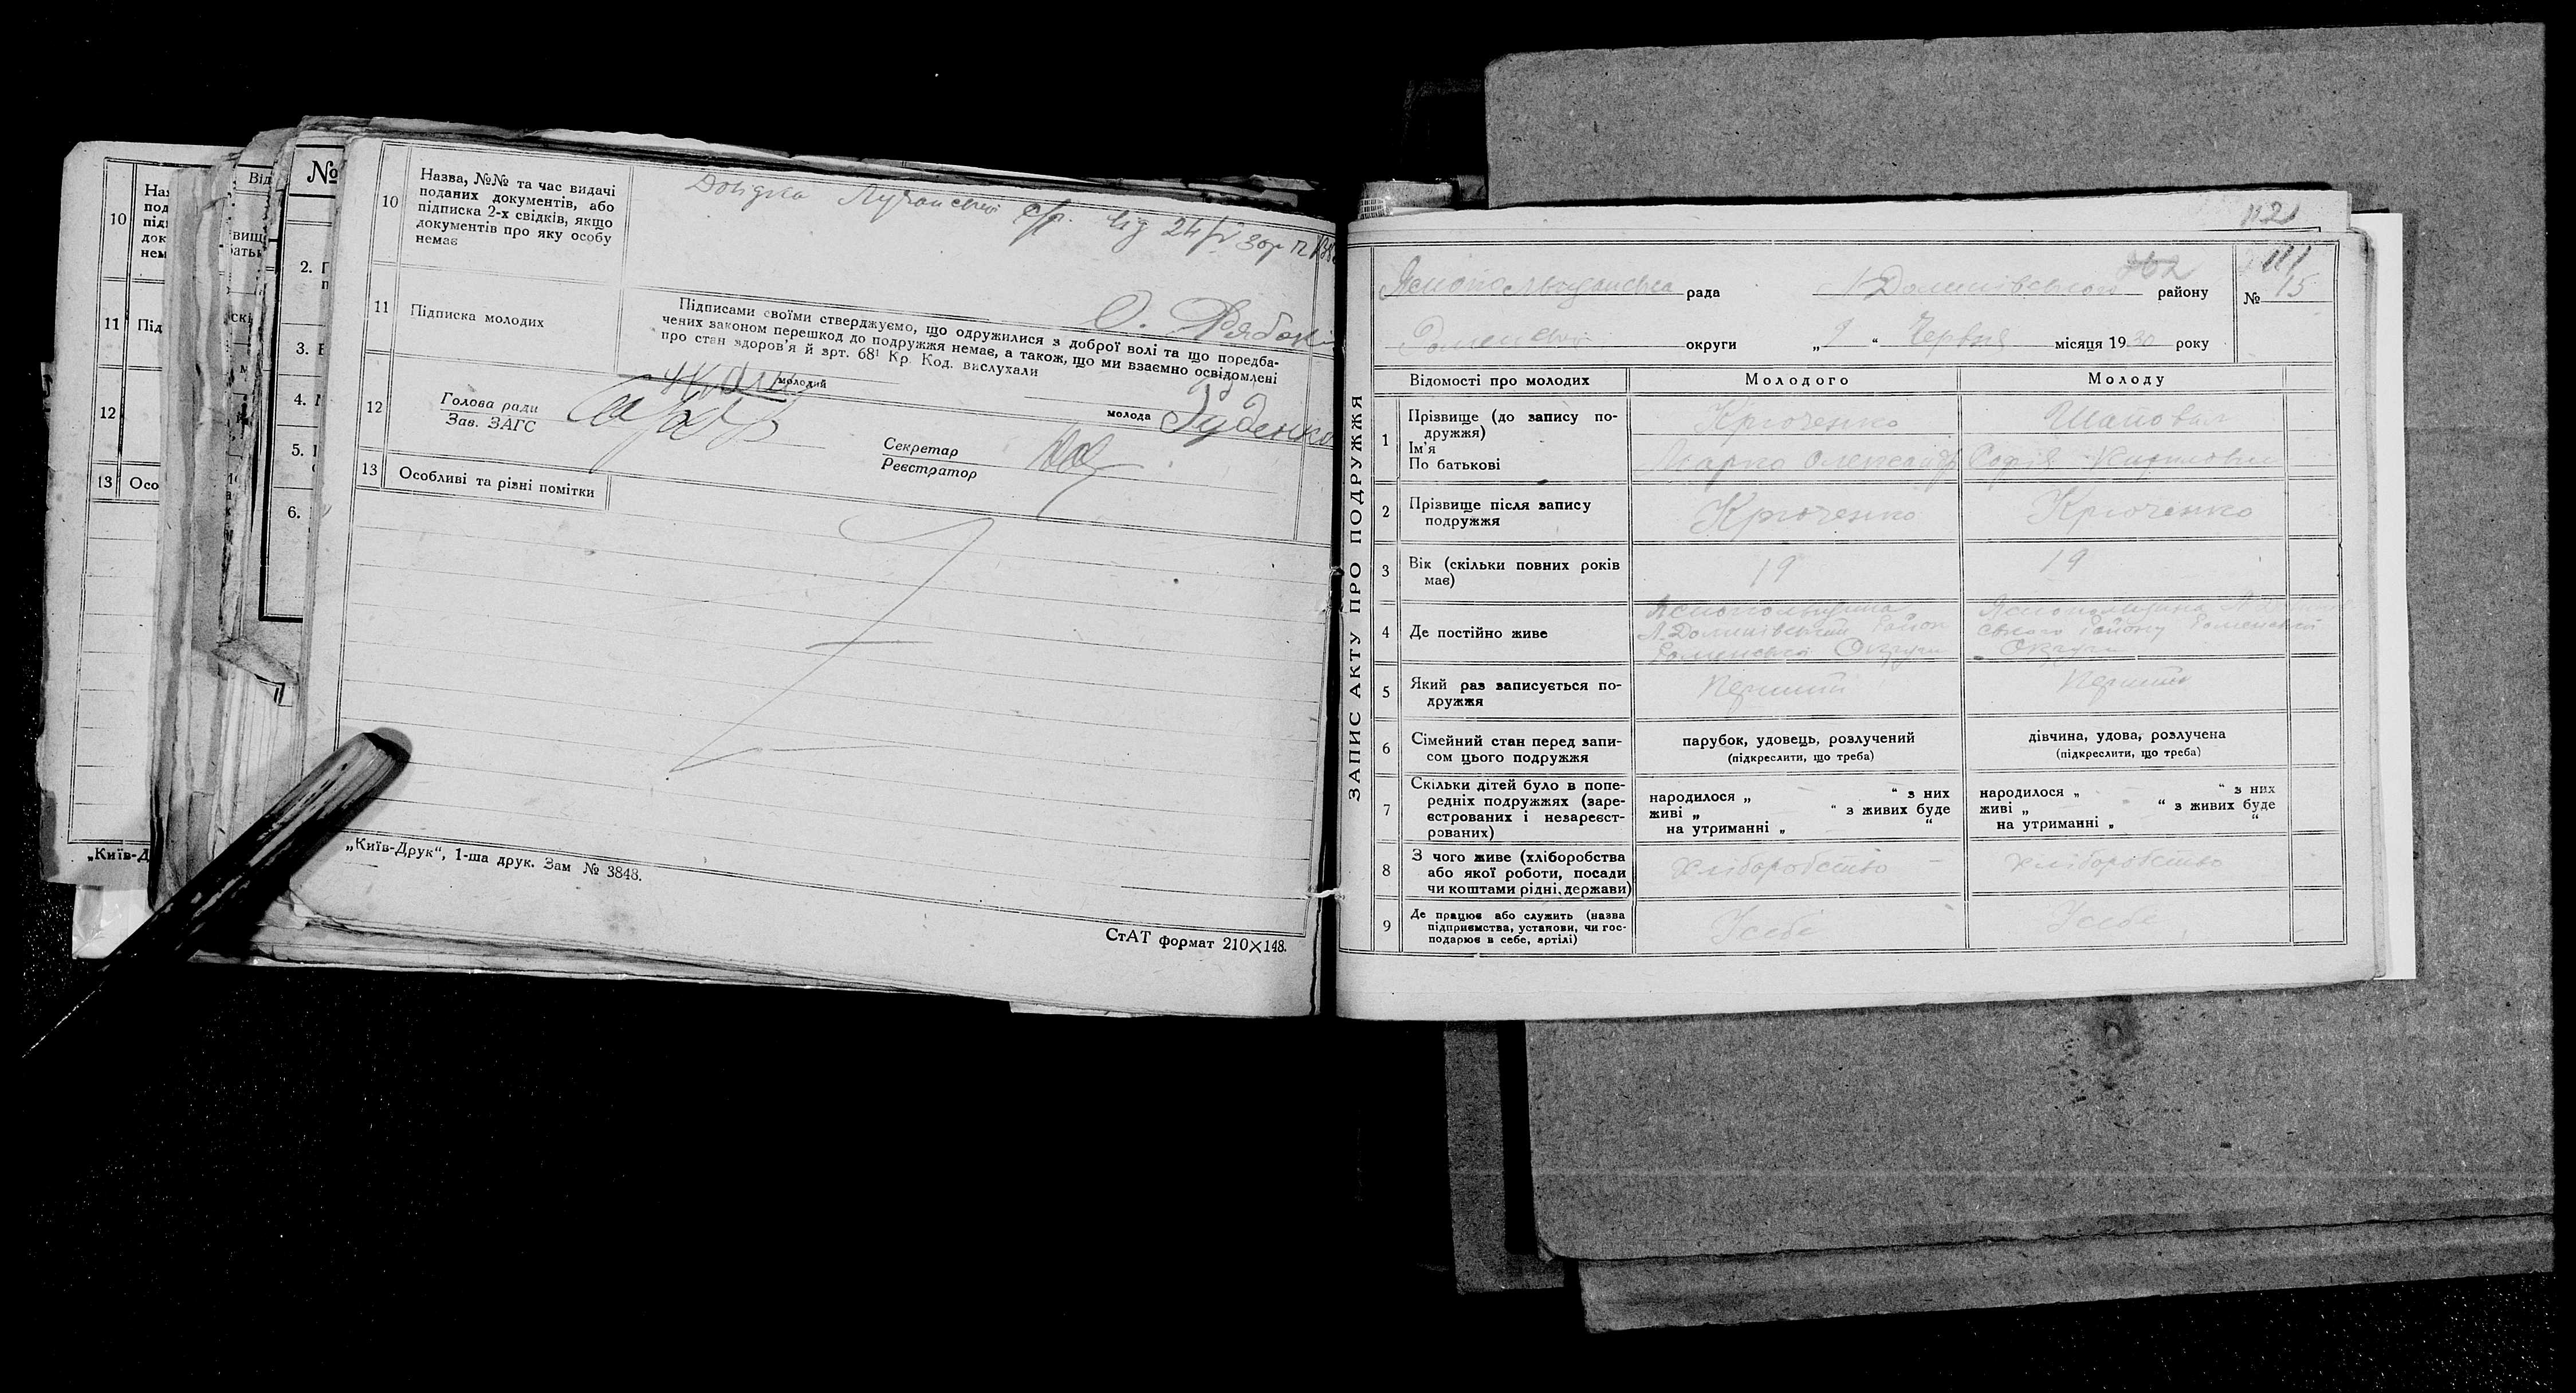 10
11
12
13 Осо
№
2.
3.
4.
5.
6.
10 Назва, №№ та час видачі
поданих документів, або
підписка 2-х свідків, якщо
документів про яку особу
немає
Довідка с/р. від 24/V 30р
11 Підписка молодих
Підписами своїми стверджуємо, що одружилися з доброї волі та що поредба-
чених законом перешкод до подружжя немає, а також, що ми взаємно освідомлені
про стан здоров'я й арт. 68¹ Кр. Код. вислухали
молодий
молода Руденко
12 Голова ради
Зав. ЗАГС
Секретар
Реєстратор
13 Особливі та різні помітки
„Київ-Друк“, 1-ша друк. Зам № 3848.
СтАТ формат 210×148.
ЗАПИС АКТУ ПРО ПОДРУЖЖЯ
121
162
111
рада району № 15
Роменської округи „ 9 “ Червня місяця 1930 року
Відомості про молодих Молодого Молоду
1 Прізвище (до запису по-
дружжя)
Ім'я
По батькові
Крюченко Шаповал
Марко Олександр Софія
2 Прізвище після запису
подружжя
Крюченко Крюченко
3 Вік (скільки повних років
має)
19 19
4 Де постійно живе
Район
Роменської Округи
району Роменської
Округи
5 Який раз записується по-
дружжя
Перший Перший
6 Сімейний стан перед запи-
сом цього подружжя
парубок, удовець, розлучений
(підкреслити, що треба)
дівчина, удова, розлучена
(підкреслити, що треба)
7 Скільки дітей було в попе-
редніх подружжях (заре-
єстрованих і незареєст-
рованих)
народилося „ “ з них
живі „ “ з живих буде
на утриманні „ “
народилося „ “ з них
живі „ “ з живих буде
на утриманні „ “
8 З чого живе (хліборобства
або якої роботи, посади
чи коштами рідні, держави)
хліборобство хліборобство
9 Де працює або служить (назва
підприємства, установи, чи гос-
подарює в себе, артілі)
У себе У себе